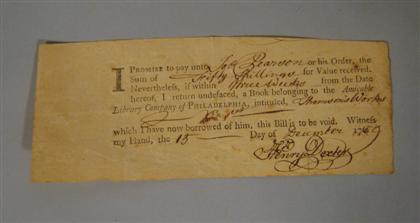 I PROMISE to pay unto Jos. Pearson or his Order, the
Sum of Fifty Shillings for Value received.
Nevertheless, if within three Weeks from the Date
hereof, I return undefaced, a Book belonging to the Amicable
Library Company of PHILADELPHIA, intituled, Thomson's Works
which I have now borrowed of him, this Bill is to be void. Witness
my Hand, the 15 Day of December 1769
Henry Dexter